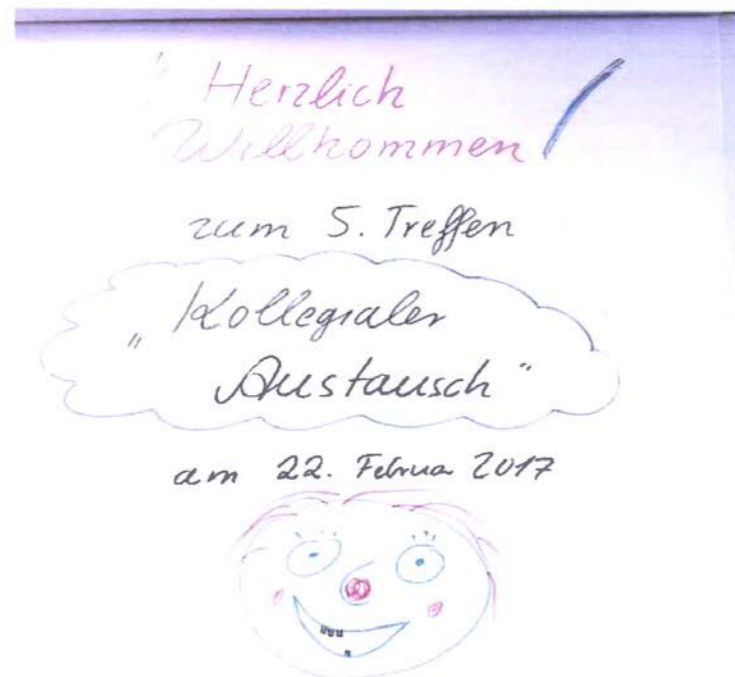 " Herzlich
Willkommen
zum 5. Treffen
„Kollegialer
Austausch“
am 22. Februar 2017